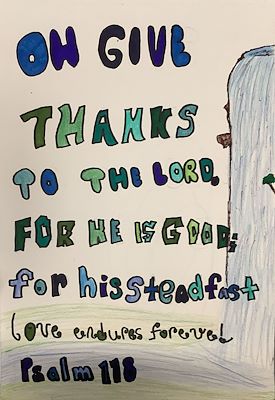 OH GIVE
THANKS
TO THE LORD,
FOR HE IS GOOD;
for his steadfast
love endures forever!
Psalm 118